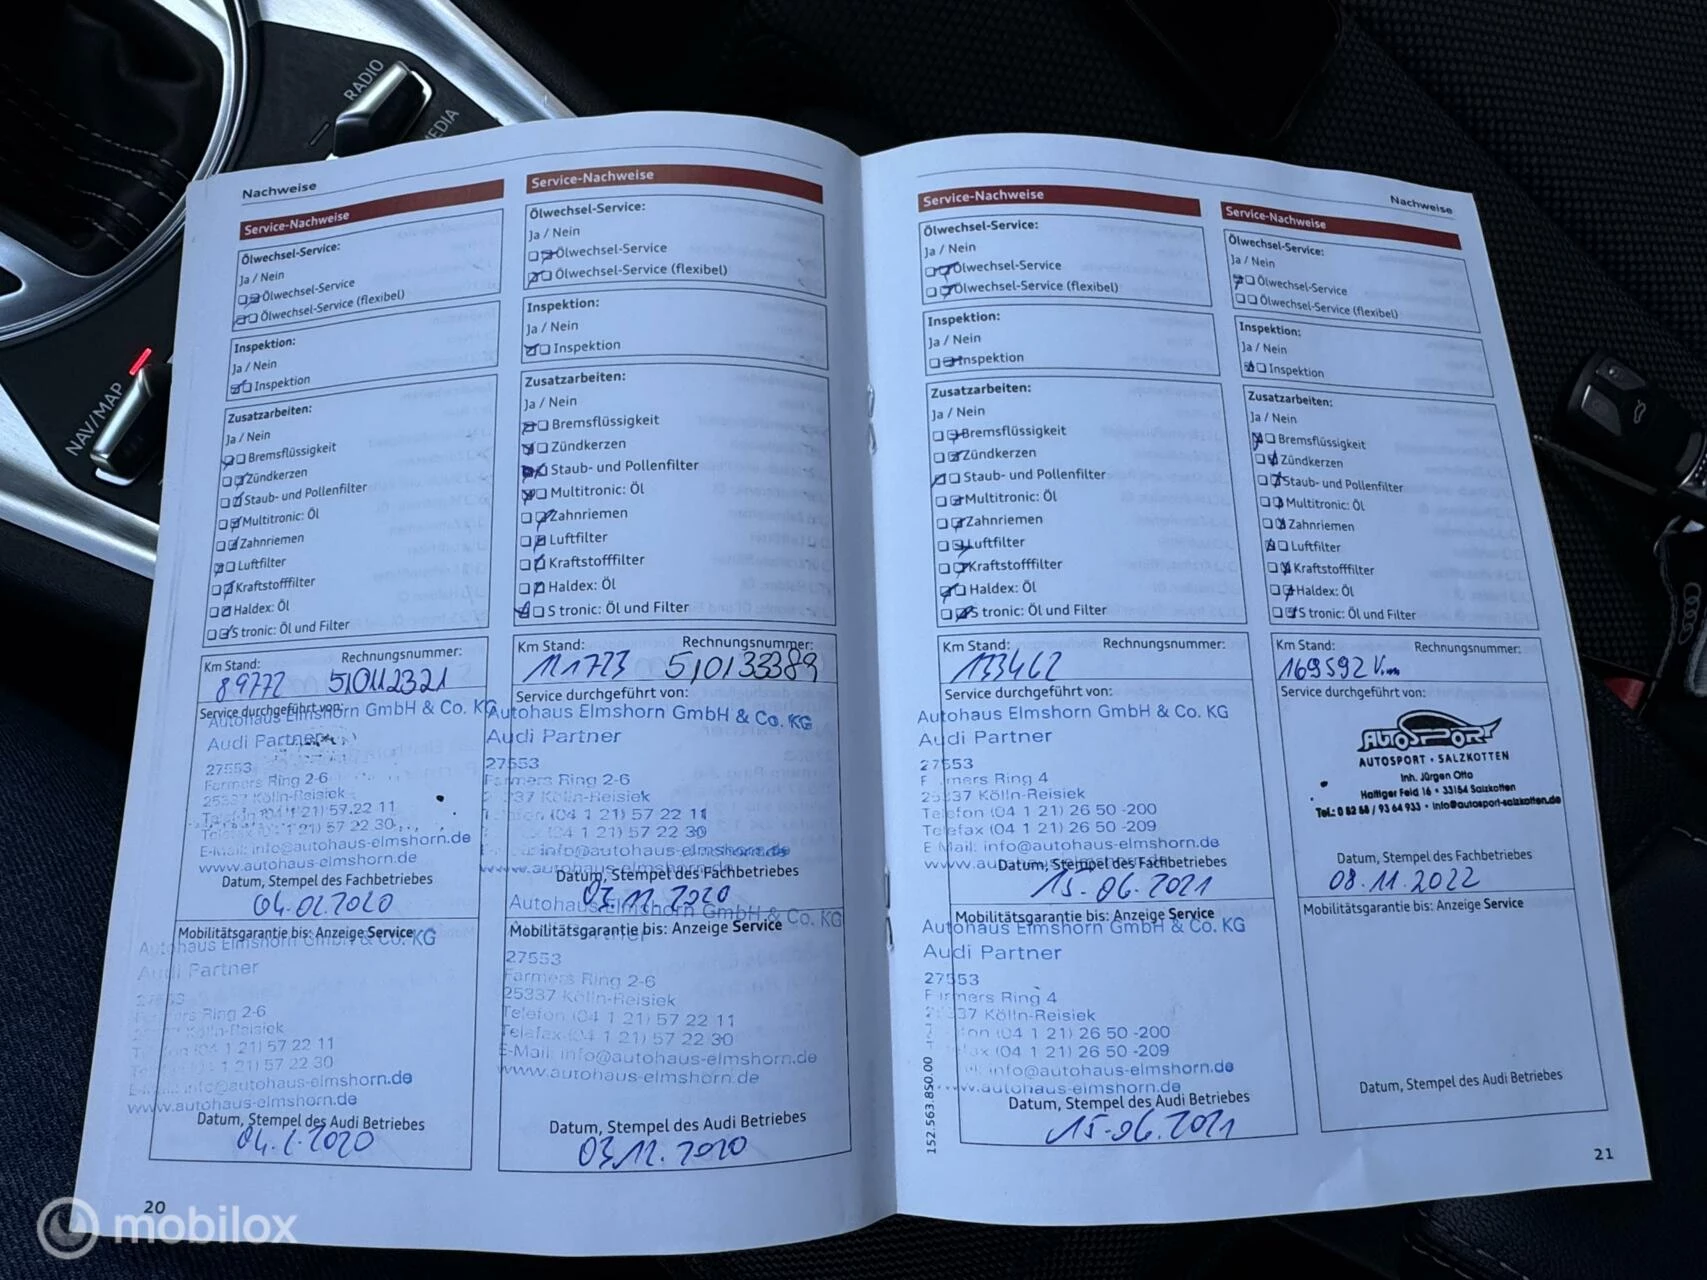 RADIO
NAV/MAP
Nachweise
Service-Nachweise
Ölwechsel-Service:
Ja / Nein
Ölwechsel-Service
Ölwechsel-Service (flexibel)
Inspektion:
Ja / Nein
Inspektion
Zusatzarbeiten:
Ja / Nein
Bremsflüssigkeit
Zündkerzen
Staub- und Pollenfilter
Multitronic: Öl
Zahnriemen
Luftfilter
Kraftstofffilter
Haldex: Öl
S tronic: Öl und Filter
Km Stand: Rechnungsnummer:
89772 51012321
Service durchgeführt von:
Autohaus Elmshorn GmbH & Co. KG
Audi Partner
27553
Farmers Ring 2-6
25337 Kölln-Reisiek
Telefon (04 1 21) 57 22 11
Telefax (04 1 21) 57 22 30
E-Mail: info@autohaus-elmshorn.de
www.autohaus-elmshorn.de
Datum, Stempel des Fachbetriebes
04.02.2020
Mobilitätsgarantie bis: Anzeige Service
Autohaus Elmshorn GmbH & Co. KG
Audi Partner
27553
Ring 2-6
Kölln-Reisiek
(04 1 21) 57 22 11
(04 1 21) 57 22 30
info@autohaus-elmshorn.de
www.autohaus-elmshorn.de
Datum, Stempel des Audi Betriebes
04.2.2020
20
Service-Nachweise
Ölwechsel-Service:
Ja / Nein
Ölwechsel-Service
Ölwechsel-Service (flexibel)
Inspektion:
Ja / Nein
Inspektion
Zusatzarbeiten:
Ja / Nein
Bremsflüssigkeit
Zündkerzen
Staub- und Pollenfilter
Multitronic: Öl
Zahnriemen
Luftfilter
Kraftstofffilter
Haldex: Öl
S tronic: Öl und Filter
Km Stand: Rechnungsnummer:
111723 510133389
Service durchgeführt von:
Autohaus Elmshorn GmbH & Co. KG
Audi Partner
27553
Farmers Ring 2-6
Kölln-Reisiek
(04 1 21) 57 22 11
(04 1 21) 57 22 30
info@autohaus-elmshorn.de
www.autohaus-elmshorn.de
Datum, Stempel des Fachbetriebes
03.12.2020
Autohaus Elmshorn GmbH & Co. KG
Mobilitätsgarantie bis: Anzeige Service
27553
Farmers Ring 2-6
25337 Kölln-Reisiek
Telefon (04 1 21) 57 22 11
Telefax (04 1 21) 57 22 30
E-Mail: info@autohaus-elmshorn.de
www.autohaus-elmshorn.de
Datum, Stempel des Audi Betriebes
03.12.2020
Nachweise
Service-Nachweise
Ölwechsel-Service:
Ja / Nein
Ölwechsel-Service
Ölwechsel-Service (flexibel)
Inspektion:
Ja / Nein
Inspektion
Zusatzarbeiten:
Ja / Nein
Bremsflüssigkeit
Zündkerzen
Staub- und Pollenfilter
Multitronic: Öl
Zahnriemen
Luftfilter
Kraftstofffilter
Haldex: Öl
S tronic: Öl und Filter
Km Stand: Rechnungsnummer:
133462
Service durchgeführt von:
Autohaus Elmshorn GmbH & Co. KG
Audi Partner
27553
Farmers Ring 4
25337 Kölln-Reisiek
Telefon (04 1 21) 26 50 -200
Telefax (04 1 21) 26 50 -209
E-Mail: info@autohaus-elmshorn.de
Datum, Stempel des Fachbetriebes
15.06.2021
Mobilitätsgarantie bis: Anzeige Service
Autohaus Elmshorn GmbH & Co. KG
Audi Partner
27553
Farmers Ring 4
Kölln-Reisiek
(04 1 21) 26 50 -200
(04 1 21) 26 50 -209
info@autohaus-elmshorn.de
www.autohaus-elmshorn.de
Datum, Stempel des Audi Betriebes
15.06.2021
152.563.850.00
Service-Nachweise
Ölwechsel-Service:
Ja / Nein
Ölwechsel-Service
Ölwechsel-Service (flexibel)
Inspektion:
Ja / Nein
Inspektion
Zusatzarbeiten:
Ja / Nein
Bremsflüssigkeit
Zündkerzen
Staub- und Pollenfilter
Multitronic: Öl
Zahnriemen
Luftfilter
Kraftstofffilter
Haldex: Öl
S tronic: Öl und Filter
Km Stand: Rechnungsnummer:
169592
Service durchgeführt von:
AUTOSPORT
AUTOSPORT · SALZKOTTEN
Inh. Jürgen Otto
Halfiger Feld 16 · 33154 Salzkotten
Tel.: 0 52 58 / 93 64 933 · info@autosport-salzkotten.de
Datum, Stempel des Fachbetriebes
08.11.2022
Mobilitätsgarantie bis: Anzeige Service
Datum, Stempel des Audi Betriebes
21
mobilox